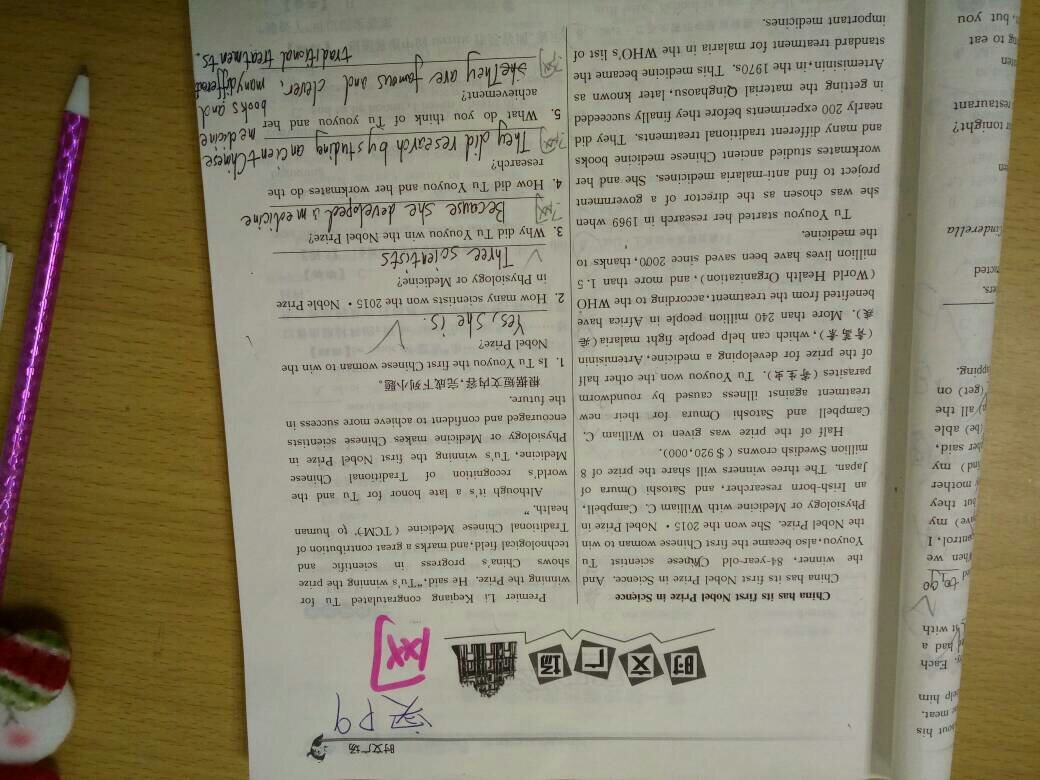 时文广场
P9
时文广场
China has its first Nobel Prize in Science
China has its first Nobel Prize in Science. And
the winner, 84-year-old Chinese scientist Tu
Youyou, also became the first Chinese woman to win
the Nobel Prize. She won the 2015 · Nobel Prize in
Physiology or Medicine with William C. Campbell,
an Irish-born researcher, and Satoshi Omura of
Japan. The three winners will share the prize of 8
million Swedish crowns ($ 920,000).
Half of the prize was given to William C.
Campbell and Satoshi Omura for their new
treatment against illness caused by roundworm
parasites (寄生虫). Tu Youyou won the other half
of the prize for developing a medicine, Artemisinin
(青蒿素), which can help people fight malaria (疟
疾). More than 240 million people in Africa have
benefited from the treatment, according to the WHO
(World Health Organization), and more than 1.5
million lives have been saved since 2000, thanks to
the medicine.
Tu Youyou started her research in 1969 when
she was chosen as the director of a government
project to find anti-malaria medicines. She and her
workmates studied ancient Chinese medicine books
and many different traditional treatments. They did
nearly 200 experiments before they finally succeeded
in getting the material Qinghaosu, later known as
Artemisinin, in the 1970s. This medicine became the
standard treatment for malaria in the WHO's list of
important medicines.
Premier Li Keqiang congratulated Tu for
winning the Prize. He said, "Tu's winning the prize
shows China's progress in scientific and
technological field, and marks a great contribution of
Traditional Chinese Medicine (TCM) to human
health."
Although it's a late honor for Tu and the
world's recognition of Traditional Chinese
Medicine, Tu's winning the first Nobel Prize in
Physiology or Medicine makes Chinese scientists
encouraged and confident to achieve more success in
the future.
根据短文内容,完成下列小题。
1. Is Tu Youyou the first Chinese woman to win the
Nobel Prize?
Yes, she is.
2. How many scientists won the 2015 · Noble Prize
in Physiology or Medicine?
Three scientists
3. Why did Tu Youyou win the Nobel Prize?
Because she developed a medicine
4. How did Tu Youyou and her workmates do the
research?
They did research by studing ancient Chinese medicine
books and
many different
traditional treatments.
5. What do you think of Tu youyou and her
achievement?
They are famous and clever,
bout his
meat.
elp him
Each
had a
it with
When we
control, I
my
but they
mother
my
said,
(be) able
all the
(get) on
apping.
Cinderella
tonight?
restaurant
to eat
but you